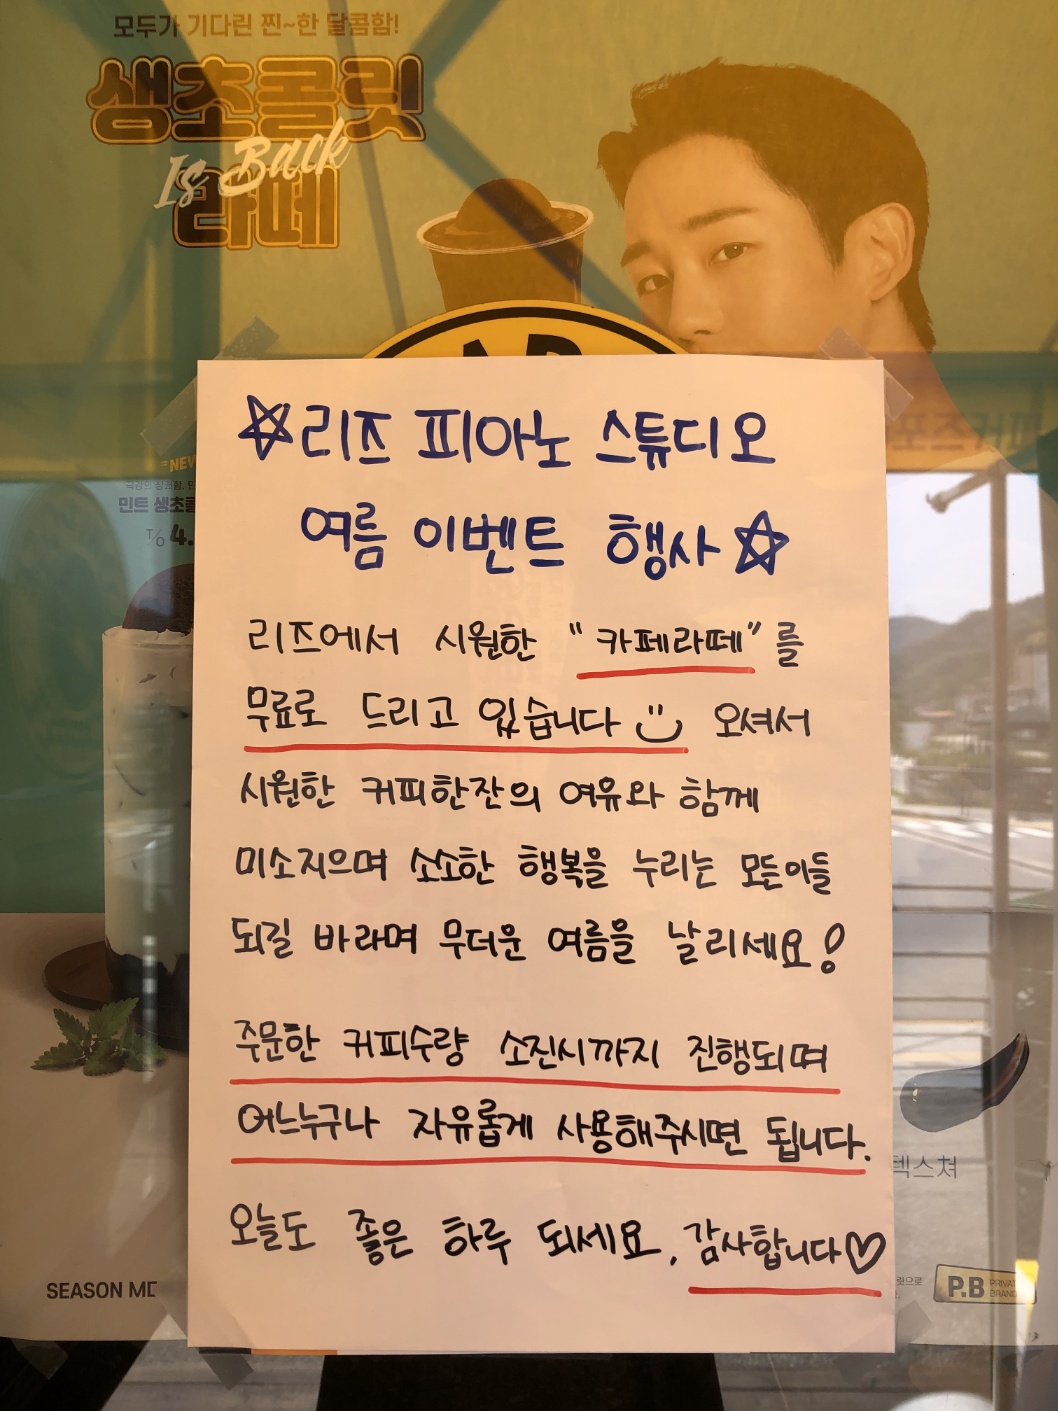 모두가 기다린 찐~한 달콤함!
생초콜릿
Is Back
라떼
☆리즈 피아노 스튜디오
여름 이벤트 행사☆
리즈에서 시원한 "카페라떼"를
무료로 드리고 있습니다 오셔서
시원한 커피한잔의 여유와 함께
미소지으며 소소한 행복을 누리는 모든이들
되길 바라며 무더운 여름을 날리세요!
주문한 커피수량 소진시까지 진행되며
어느누구나 자유롭게 사용해주시면 됩니다.
오늘도 좋은 하루 되세요. 감사합니다♡
NEW
민트 생초콜
4.
텍스쳐
SEASON ME
P.B